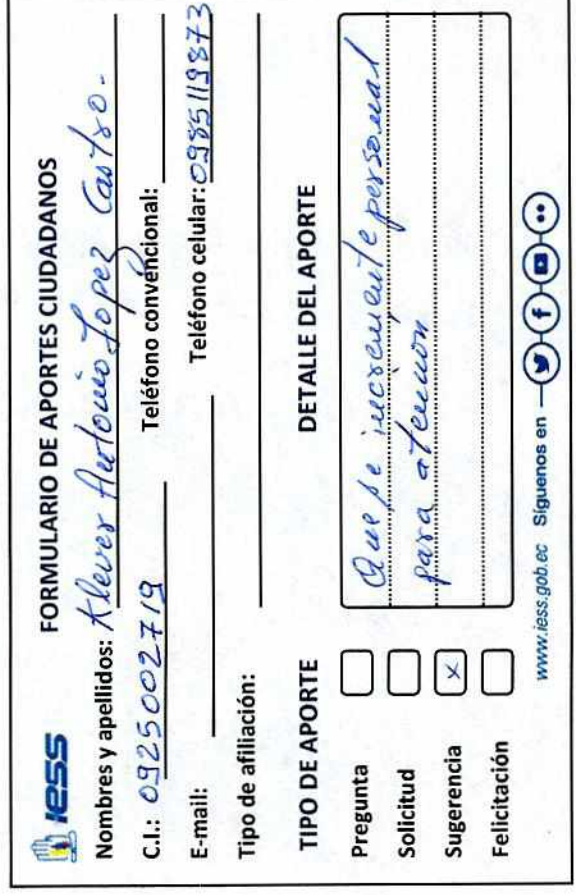 IESS
FORMULARIO DE APORTES CIUDADANOS
Nombres y apellidos: Klever Antonio Lopez Castro.
C.I.: 0925002719 Teléfono convencional:
E-mail: Teléfono celular: 0985119873
Tipo de afiliación:
TIPO DE APORTE
DETALLE DEL APORTE
Pregunta
Solicitud
Sugerencia x
Felicitación
Que se incremente personal
para atención
www.iess.gob.ec Síguenos en